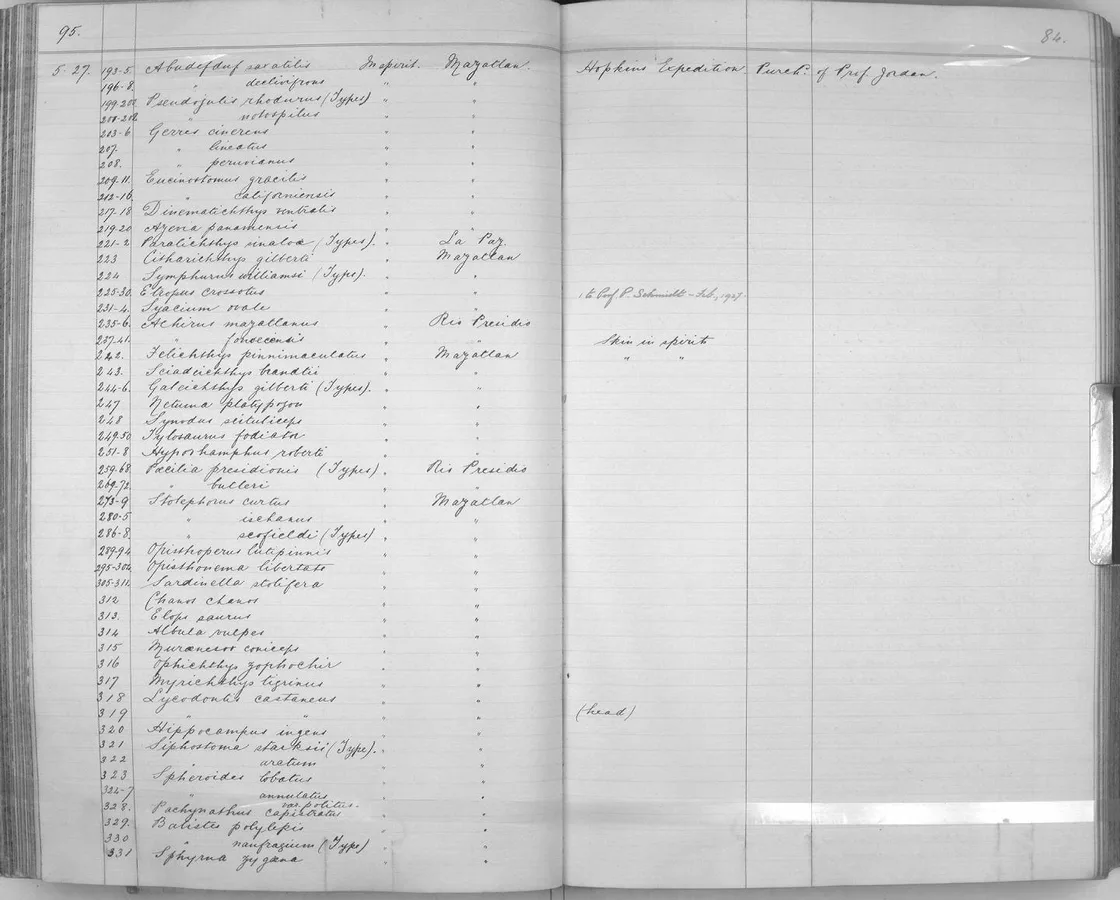 95.
84.
5. 27. 193-5. Abudefduf saxatilis In spirit. Mazatlan. Hopkins Expedition. Purch. of Prof. Jordan.
196-8. " declivifrons " "
199-200 Pseudojulis rhodurus (Types) " "
201-202 " notospilus " "
203-6 Gerres cinereus " "
207. " lineatus " "
208. " peruvianus " "
209-11. Eucinostomus gracilis " "
212-16. " californiensis " "
217-18 Dinematichthys ventralis " "
219-20 Azevia panamensis " "
221-2 Paralichthys sinaloæ (Types). " La Paz.
223 Citharichthys gilberti " Mazatlan
224 Symphurus williamsi (Type). " "
225-30. Etropus crossotus " " 1 to Prof P. Schmidt - Feb, 1927.
231-4. Syacium ovale " "
235-6. Achirus mazatlanus " Rio Presidio
237-41. " fonsecensis " " Skin in spirit
242. Felichthys pinnimaculatus " Mazatlan " "
243. Sciadeichthys brandtii " "
244-6. Galeichthys gilberti (Types). " "
247 Netuma platypogon " "
248 Synodus scituliceps " "
249-50 Tylosaurus fodiator " "
251-8 Hyporhamphus roberti " "
259-68. Pœcilia presidionis (Types) " Rio Presidio
269-72. " butleri " "
273-9 Stolephorus curtus " Mazatlan
280-5 " ischanus " "
286-8. " scofieldi (Types) " "
289-94 Opisthopterus lutipinnis " "
295-304 Opisthonema libertate " "
305-311. Sardinella stolifera " "
312 Chanos chanos " "
313. Elops saurus " "
314 Albula vulpes " "
315 Murænesox coniceps " "
316 Ophichthys zophochir " "
317 Myrichthys tigrinus " "
318 Lycodontis castaneus " "
319 " " " " (head)
320 Hippocampus ingens " "
321 Siphostoma starksii (Type). " "
322 " aratum " "
323 Spheroides lobatus " "
324-7 " annulatus " "
var. politus.
328. Pachynathus capistratus " "
329. Balistes polylepis " "
330 " naufragium (Type) " "
331 Sphyrna zygæna " "